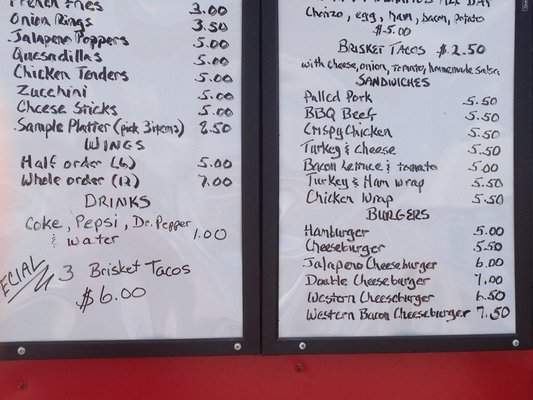 French Fries 3.00
Onion Rings 3.50
Jalapeno Poppers 5.00
Quesadillas 5.00
Chicken Tenders 5.00
Zucchini 5.00
Cheese Sticks 5.00
Sample Platter (pick 3 items) 8.50
WINGS
Half order (6) 5.00
Whole order (12) 7.00
DRINKS
Coke, Pepsi, Dr. Pepper
& water 1.00
ECIAL 3 Brisket Tacos
$6.00
ALL DAY
Chorizo, egg, ham, bacon, potato
$5.00
BRISKET TACOS $2.50
with cheese, onion, tomato, homemade salsa
SANDWICHES
Pulled Pork 5.50
BBQ Beef 5.50
Crispy Chicken 5.50
Turkey & Cheese 5.50
Bacon Lettuce & tomato 5.00
Turkey & Ham wrap 5.50
Chicken Wrap 5.50
BURGERS
Hamburger 5.00
Cheeseburger 5.50
Jalapeno Cheeseburger 6.00
Double Cheeseburger 7.00
Western Cheeseburger 6.50
Western Bacon Cheeseburger 7.50